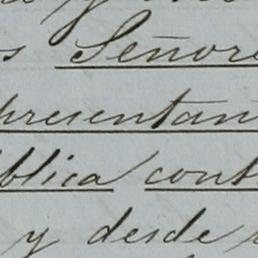 s Señore
presentan
blica cont
y desde